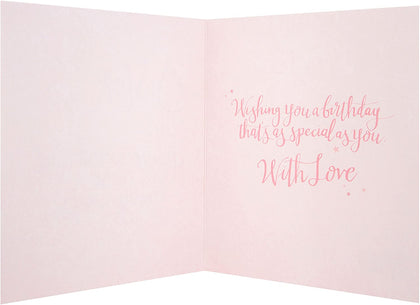 Wishing you a birthday
that's as special as you.
With Love